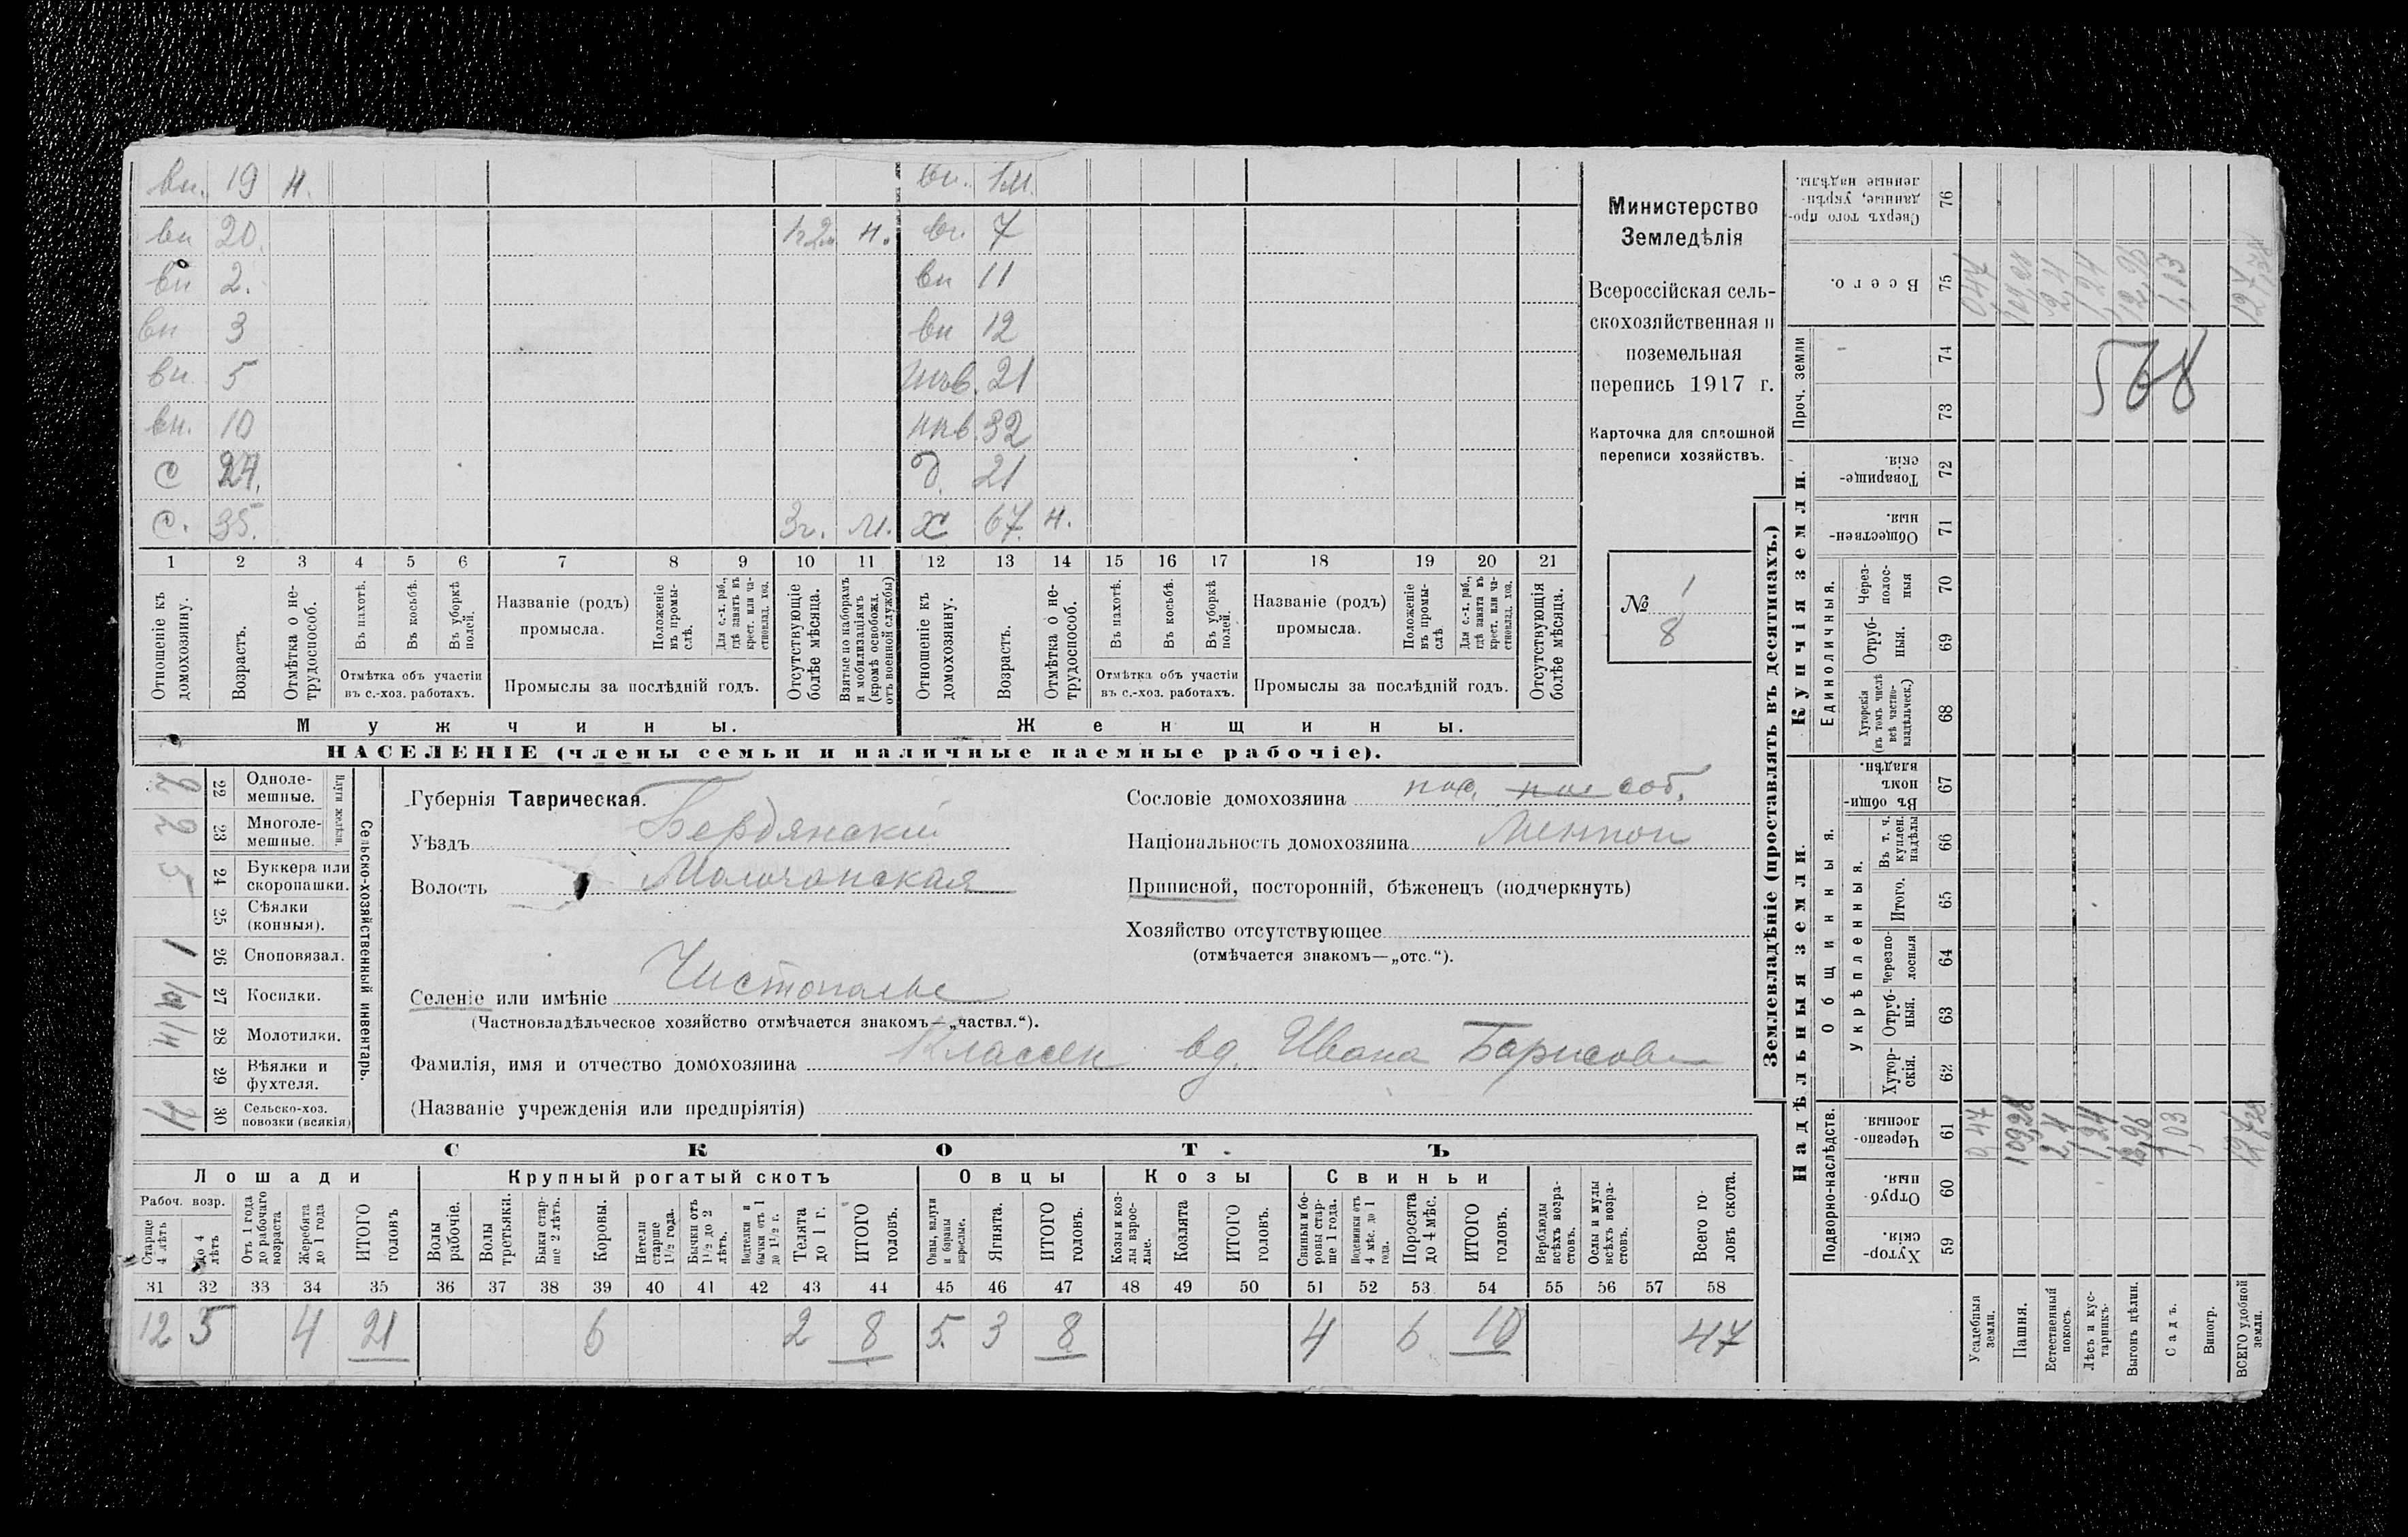 вн. 19 н. вн. 1 м.
вн 20. н. вн. 7
вн 2. вн 11
вн 3 вн 12
вн 5 21
вн. 10 32
с 24. д. 21
с. 35. 3 г. м. х 67. н.
1 2 3 4 5 6 7 8 9 10 11 12 13 14 15 16 17 18 19 20 21
Отношеніе къ домохозяину.
Возрастъ.
Отмѣтка о нетрудоспособ.
Въ пахотѣ.
Въ косьбѣ.
Въ уборкѣ полей.
Отмѣтка объ участіи въ с.-хоз. работахъ.
Названіе (родъ) промысла.
Положеніе въ промыслѣ.
Для с.-х. раб., гдѣ занятъ въ крест. или частновлад. хоз.
Промыслы за послѣдній годъ.
Отсутствующіе болѣе мѣсяца.
Взятые по наборамъ и мобилизаціямъ (кромѣ освобожд. отъ военной службы)
Отношеніе къ домохозяину.
Возрастъ.
Отмѣтка о нетрудоспособ.
Въ пахотѣ.
Въ косьбѣ.
Въ уборкѣ полей.
Отмѣтка объ участіи въ с.-хоз. работахъ.
Названіе (родъ) промысла.
Положеніе въ промыслѣ
Для с.-х. раб., гдѣ занята въ крест. или частновлад. хоз.
Промыслы за послѣдній годъ.
Отсутствующія болѣе мѣсяца.
Мужчины. Женщины.
НАСЕЛЕНІЕ (члены семьи и наличные наемные рабочіе).
Министерство
Земледѣлія
Всероссійская сель-
скохозяйственная и
поземельная
перепись 1917 г.
Карточка для сплошной
переписи хозяйствъ.
№ 1
8
Сельско-хозяйственный инвентарь.
Плуги желѣзн.
22 Одноле-
мешные. 2
23 Многоле-
мешные. 2
24 Буккера или
скоропашки.
25 Сѣялки
(конныя).
26 Сноповязал. 1
27 Косилки.
28 Молотилки.
29 Вѣялки и
фухтеля.
30 Сельско-хоз.
повозки (всякія) 4
Губернія Таврическая.
Уѣздъ Бердянскій
Волость Молочанская
Селеніе или имѣніе Чистополье
(Частновладѣльческое хозяйство отмѣчается знакомъ—„частвл.“).
Фамилія, имя и отчество домохозяина Классен вд. Ивана Борисова
(Названіе учрежденія или предпріятія)
Сословіе домохозяина пос. соб.
Національность домохозяина
Приписной, посторонній, бѣженецъ (подчеркнуть)
Хозяйство отсутствующее
(отмѣчается знакомъ—„отс.“).
СКОТЪ
Лошади Крупный рогатый скотъ Овцы Козы Свиньи
Рабоч. возр.
Старше 4 лѣтъ
До 4 лѣтъ
Отъ 1 года до рабочаго возраста
Жеребята до 1 года
ИТОГО головъ
Волы рабочіе.
Волы третьяки.
Быки старше 2 лѣтъ.
Коровы.
Нетели старше 1½ года.
Бычки отъ 1½ до 2 лѣтъ.
Подтелки и бычки отъ 1 до 1½ г.
Телята до 1 г.
ИТОГО головъ.
Овцы, валухи и бараны взрослые.
Ягнята.
ИТОГО головъ.
Козы и козлы взрослые.
Козлята
ИТОГО головъ.
Свиньи и боровы старше 1 года.
Подсвинки отъ 4 мѣс. до 1 года.
Поросята до 4 мѣс.
ИТОГО головъ.
Верблюды всѣхъ возрастовъ.
Ослы и мулы всѣхъ возрастовъ.
Всего головъ скота.
31 32 33 34 35 36 37 38 39 40 41 42 43 44 45 46 47 48 49 50 51 52 53 54 55 56 57 58
12 5 4 21 6 2 8 5 3 8 4 6 10 47
Землевладѣніе (проставлять въ десятинахъ.)
Надѣльныя земли. Купчія земли. Проч. земли
Подворно-наслѣдств. Общинныя. Единоличныя.
Укрѣпленныя.
Хуторскія. 59
Отрубныя. 60
Черезполосныя 61
Хуторскія. 62
Отрубныя. 63
Черезполосныя 64
Итого. 65
Въ т. ч. куплен. надѣлы 66
Въ общинномъ владѣн. 67
Хуторскія (въ томъ числѣ всѣ частновладѣльческ.) 68
Отрубныя. 69
Черезполосныя 70
Общественныя. 71
Товарищескія. 72
73
74
Всего. 75
Сверхъ того проданные, укрѣпленные надѣлы. 76
Усадебныя земли. 0,47
Пашня. 109,28
Естественный покосъ. 2,4
Лѣсъ и кустарникъ. 1,24
Выгонъ цѣлин. 12,96
Садъ. 1,03
Виногр.
ВСЕГО удобной земли. 127,38
568